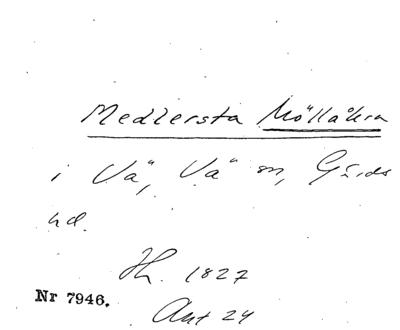 Medlersta Möllåkra
i Vä, Vä sn, Gärds
hd.
Jh. 1827
Nr 7946.
Akt 24